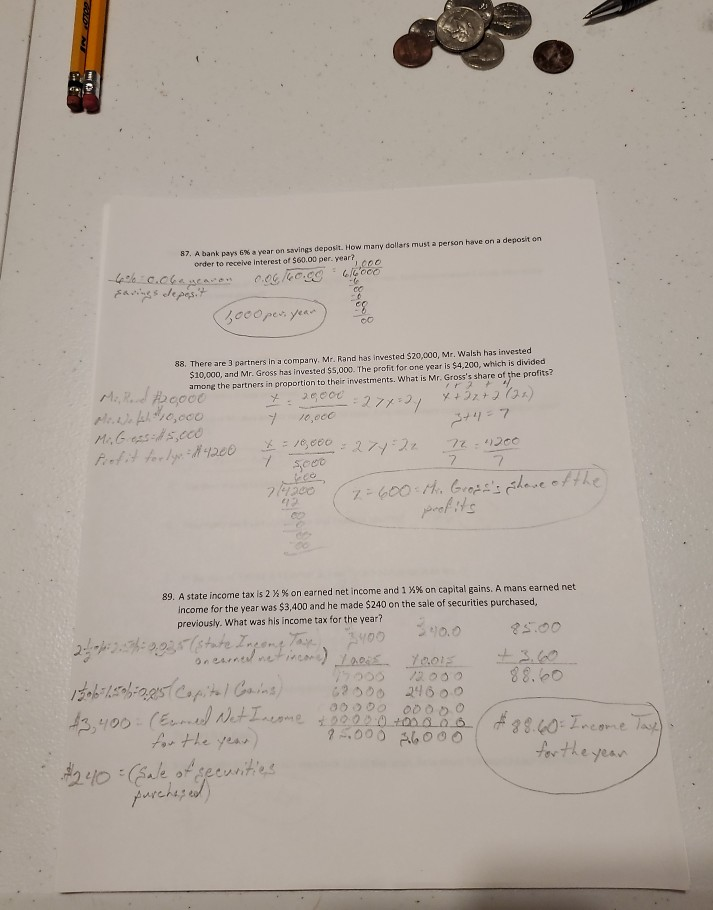 87. A bank pays 6% a year on savings deposit. How many dollars must a person have on a deposit on
order to receive interest of $60.00 per. year?
savings deposit
1,000
6/6000
1,000 per. year
88. There are 3 partners in a company. Mr. Rand has invested $20,000, Mr. Walsh has invested
$10,000, and Mr. Gross has invested $5,000. The profit for one year is $4,200, which is divided
among the partners in proportion to their investments. What is Mr. Gross's share of the profits?
Mr. Rand $20,000
Mr. Walsh $10,000
Mr. Gross = $5,000
Profit for 1yr = $4200
20,000
10,000
10,000
5,000
3+4=7
7z = 4200
7 7
600
7/4200
42
00
z=600=Mr. Gross's share of the
profits
89. A state income tax is 2 ½ % on earned net income and 1 ½% on capital gains. A mans earned net
income for the year was $3,400 and he made $240 on the sale of securities purchased,
previously. What was his income tax for the year?
(State Income Tax
on earned net income)
(Capital Gains)
$3,400 = (Earned Net Income
for the year)
$240 = (Sale of securities
purchased)
3400
17000
68000
00000
85.000
12000
24000
00000
36000
85.00
+ 3.60
88.60
$88.60 = Income Tax
for the year